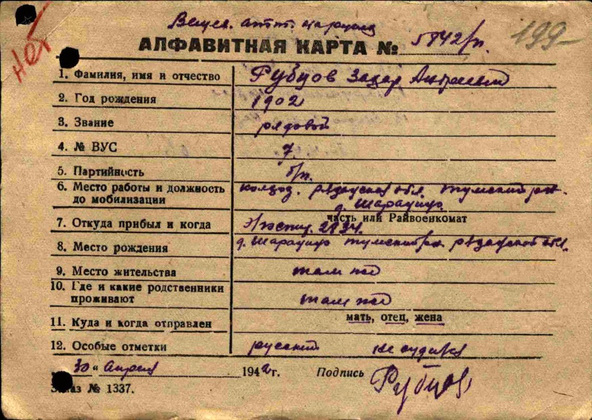 нет
Вещев. аттт.
АЛФАВИТНАЯ КАРТА № 5842/п. 199-
1. Фамилия, имя и отчество Рубцов Захар Андреевич
2. Год рождения 1902
3. Звание рядовой
4. № ВУС 7
5. Партийность б/п.
6. Место работы и должность до мобилизации колхоз. рязанская обл. Тумский р-н.
7. Откуда прибыл и когда
часть или Райвоенкомат
8. Место рождения Тумский рязанской обл.
9. Место жительства там же
10. Где и какие родственники
проживают там же
мать, отец, жена
11. Куда и когда отправлен
12. Особые отметки русский не судился
30" апреля 1942г. Подпись Рубцов
Заказ № 1337.